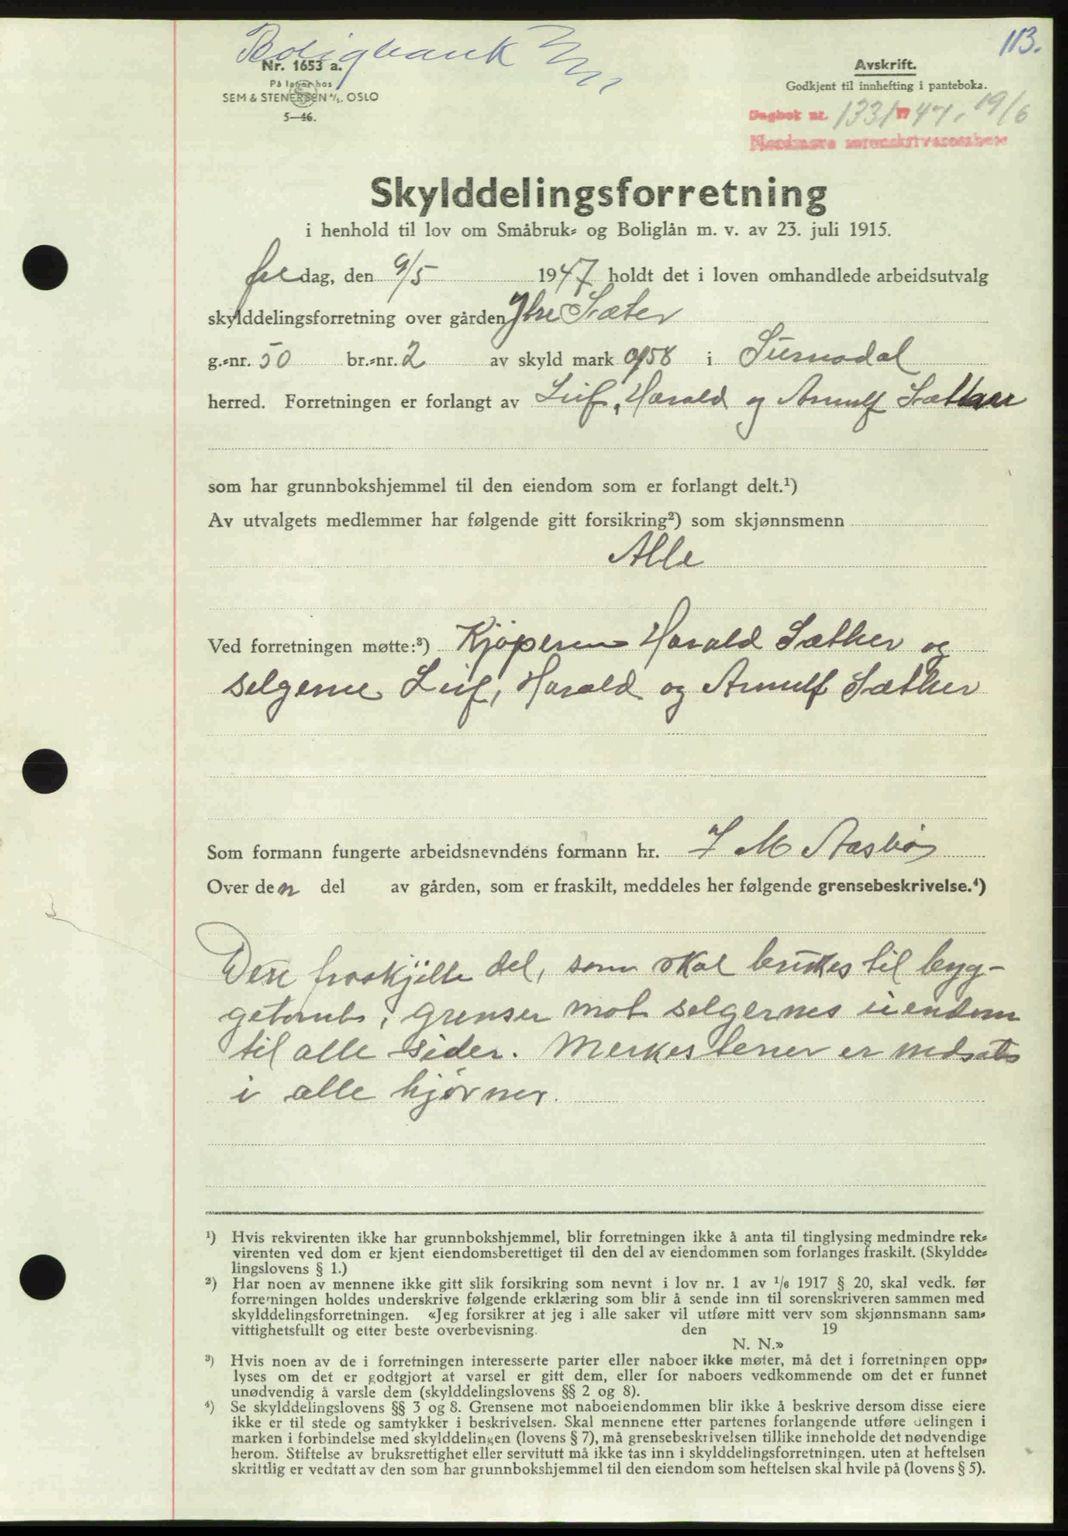 113.
Boligbank
Nr. 1653 a.
På lager hos
SEM & STENERSEN A/S. OSLO
5—46.
Avskrift.
Godkjent til innhefting i panteboka.
Dagbok nr. 1331 47, 19/6
Nordmøre sorenskriverembede
Skylddelingsforretning
i henhold til lov om Småbruk- og Boliglån m. v. av 23. juli 1915.
fredag, den 9/5 1947 holdt det i loven omhandlede arbeidsutvalg
skylddelingsforretning over gården Ytre Sæter
g.-nr. 50 br.-nr. 2 av skyld mark 0,58 i Surnadal
herred. Forretningen er forlangt av Leif, Harald og Arnulf Sæther
som har grunnbokshjemmel til den eiendom som er forlangt delt.¹)
Av utvalgets medlemmer har følgende gitt forsikring²) som skjønnsmenn
Alle
Ved forretningen møtte:³) Kjøperen Harald Sæther og
selgerne Leif, Harald og Arnulf Sæther
Som formann fungerte arbeidsnevndens formann hr. J M Aasbø
Over den del av gården, som er fraskilt, meddeles her følgende grensebeskrivelse.⁴)
Den fraskjilte del, som skal brukes til byg-
getomt, grenser mot selgernes eiendom
til alle sider. Merkestener er nedsatt
i alle hjørner.
¹) Hvis rekvirenten ikke har grunnbokshjemmel, blir forretningen ikke å anta til tinglysing medmindre rek-
virenten ved dom er kjent eiendomsberettiget til den del av eiendommen som forlanges fraskilt. (Skyldde-
lingslovens § 1.)
²) Har noen av mennene ikke gitt slik forsikring som nevnt i lov nr. 1 av 1/6 1917 § 20, skal vedk. før
forretningen holdes underskrive følgende erklæring som blir å sende inn til sorenskriveren sammen med
skylddelingsforretningen. «Jeg forsikrer at jeg i alle saker vil utføre mitt verv som skjønnsmann sam-
vittighetsfullt og etter beste overbevisning. den 19
N. N.»
³) Hvis noen av de i forretningen interesserte parter eller naboer ikke møter, må det i forretningen opp-
lyses om det er godtgjort at varsel er gitt dem, eller for naboers vedkommende om det er funnet
unødvendig å varsle dem (skylddelingslovens §§ 2 og 8).
⁴) Se skylddelingslovens §§ 3 og 8. Grensene mot naboeiendommen blir ikke å beskrive dersom disse eiere
ikke er til stede og samtykker i beskrivelsen. Skal mennene etter partenes forlangende utføre delingen i
marken i forbindelse med skylddelingen (lovens § 7), må grensebeskrivelsen tillike inneholde det nødvendige
herom. Stiftelse av bruksrettighet eller servitutt må ikke tas inn i skylddelingsforretningen, uten at heftelsen
skriftlig er vedtatt av den som har grunnbokshjemmel til den eiendom som heftelsen skal hvile på (lovens § 5).